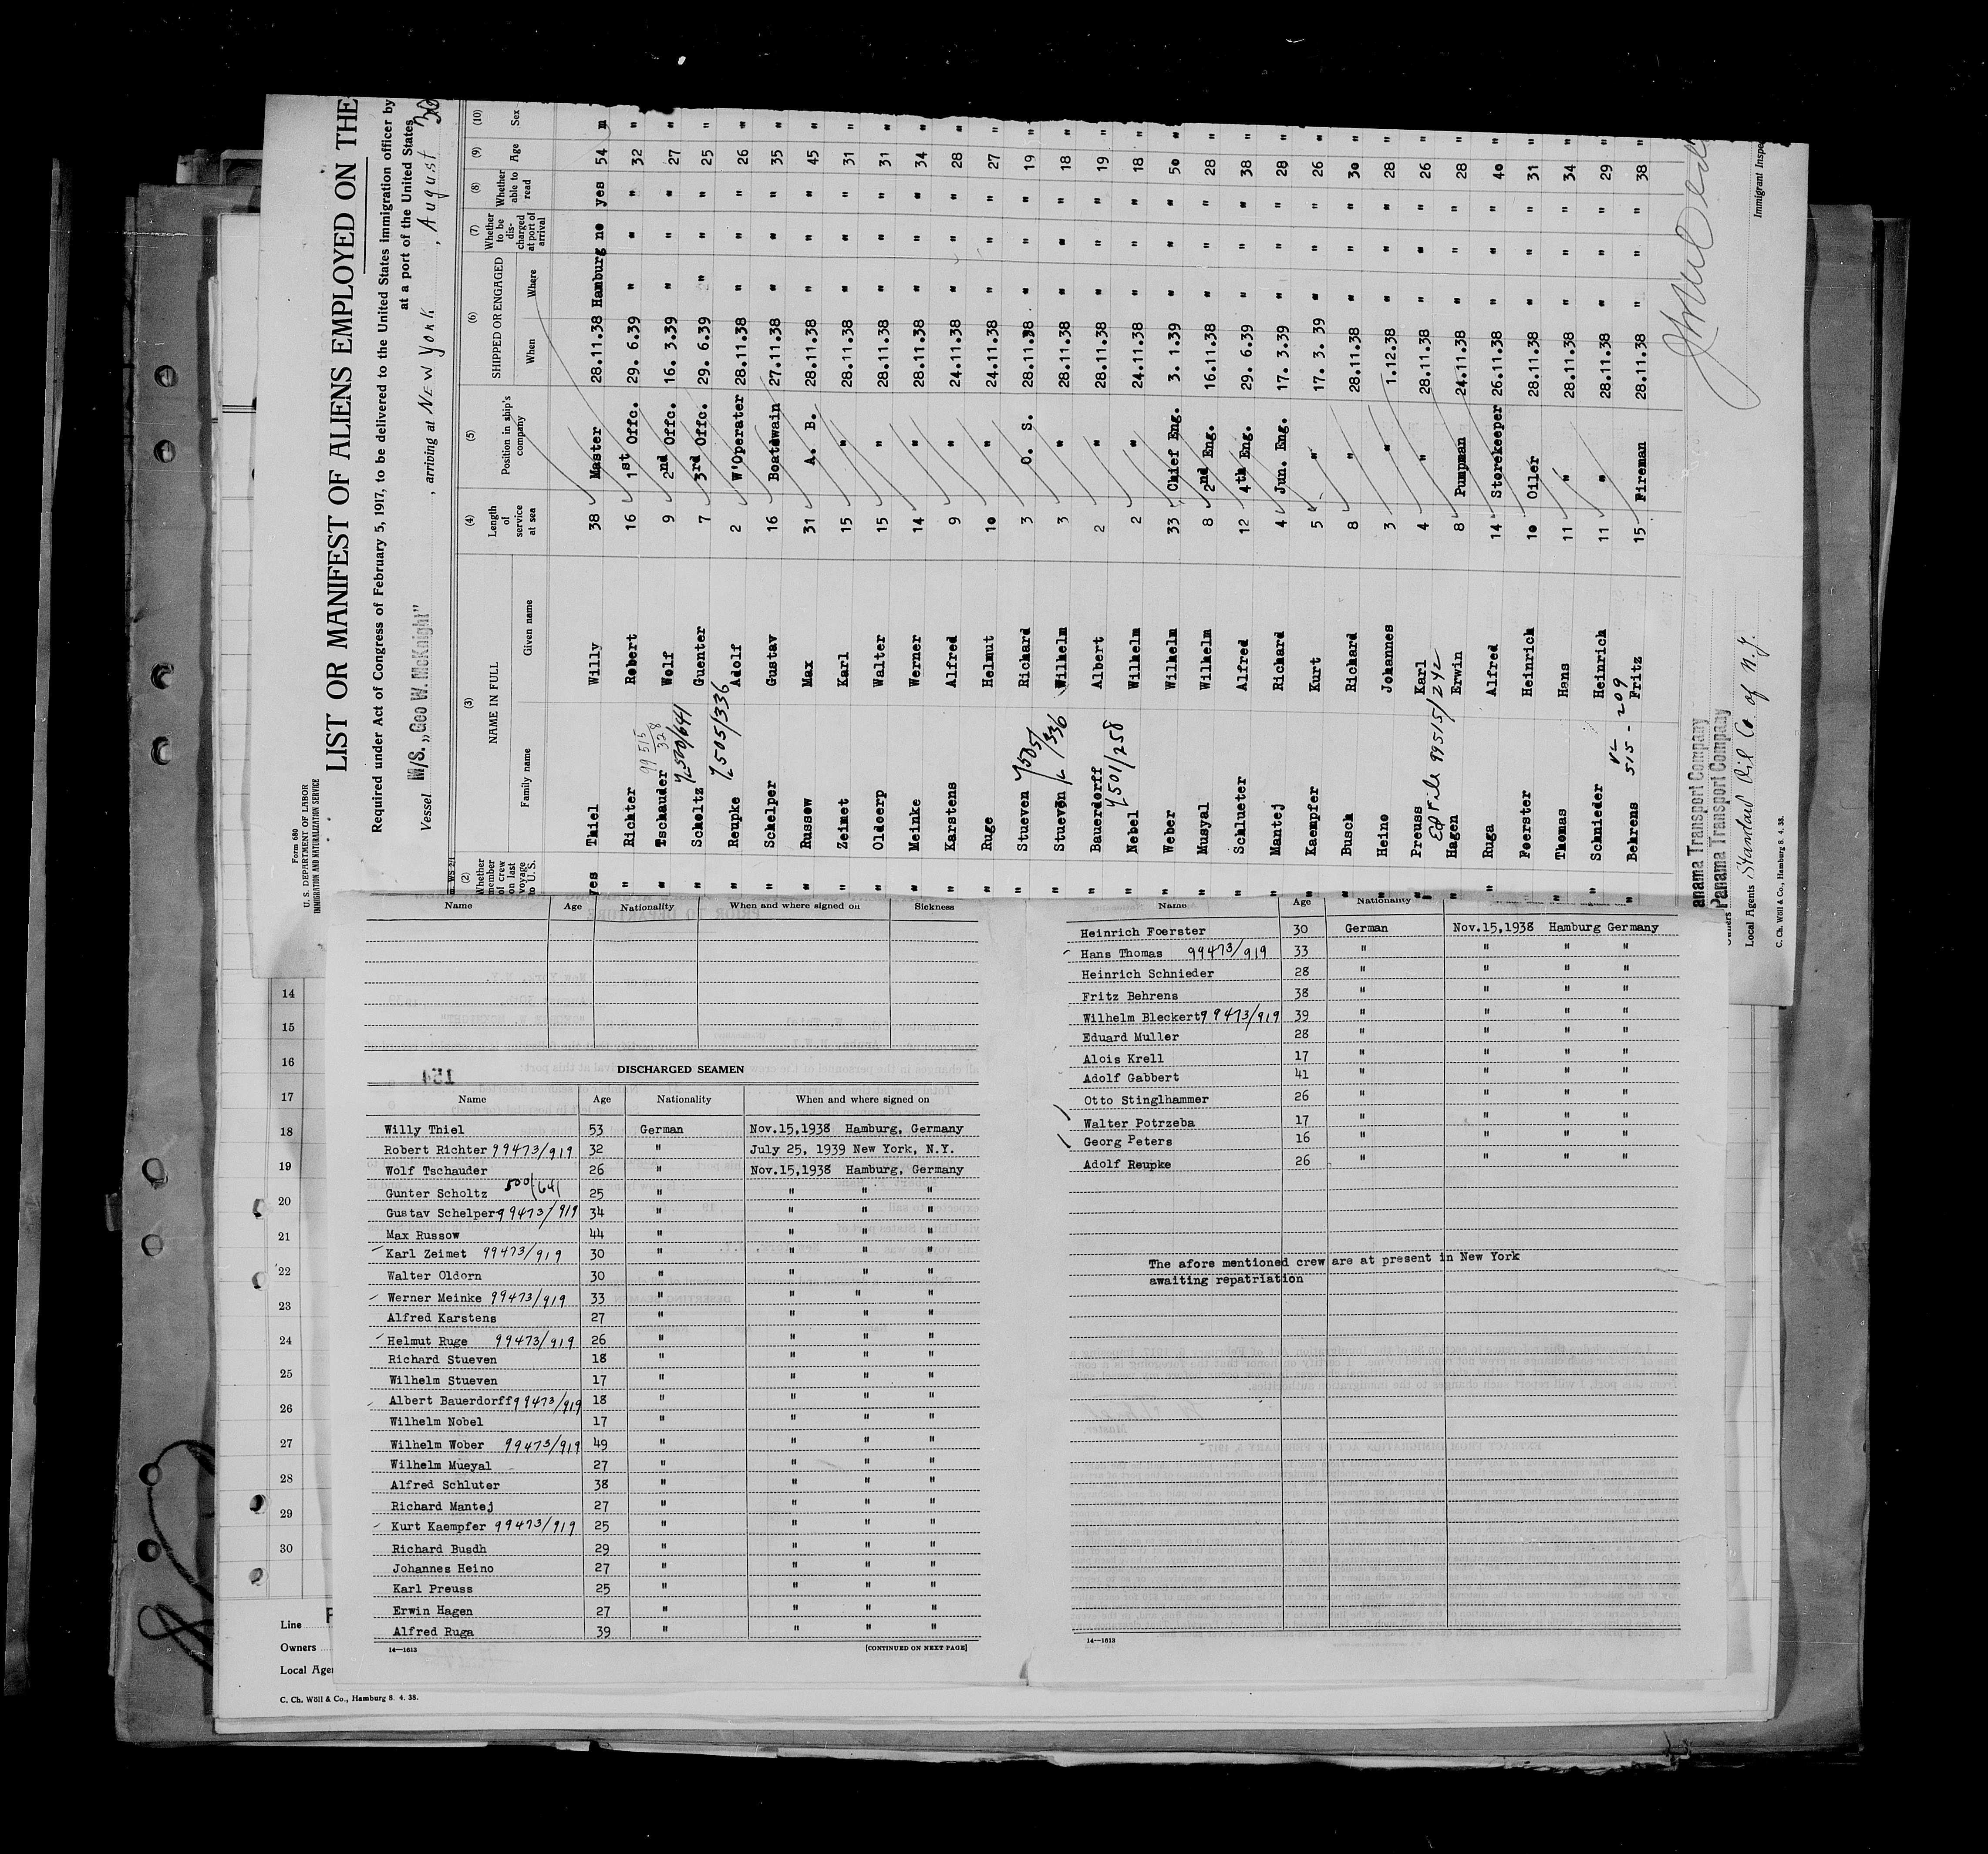 Form 680
U. S. DEPARTMENT OF LABOR
IMMIGRATION AND NATURALIZATION SERVICE
LIST OR MANIFEST OF ALIENS EMPLOYED ON THE
Required under Act of Congress of February 5, 1917, to be delivered to the United States immigration officer by
at a port of the United States
Vessel M/S. „Geo W. McKnight" , arriving at New York , August 30
(2) (3) (4) (5) (6) (7) (8) (9) (10)
Whether member of crew on last voyage to U.S. NAME IN FULL Family name Given name Length of service at sea Position in ship's company SHIPPED OR ENGAGED When Where Whether to be discharged at port of arrival Whether able to read Age Sex
yes Thiel Willy 38 Master 28.11.38 Hamburg no yes 54 m
" Richter Robert 16 1st Offc. 29. 6.39 " " " 32 "
" Tschauder 99515/328 Wolf 9 2nd Offc. 16. 3.39 " " " 27 "
" Scholtz 500/641 Guenter 7 3rd Offc. 29. 6.39 " " " 25 "
" Reupke 505/336 Adolf 2 W'Operater 28.11.38 " " " 26 "
" Schelper Gustav 16 Boatswain 27.11.38 " " " 35 "
" Russow Max 31 A. B. 28.11.38 " " " 45 "
" Zeimet Karl 15 " 28.11.38 " " " 31 "
" Oldoerp Walter 15 " 28.11.38 " " " 31 "
" Meinke Werner 14 " 28.11.38 " " " 34 "
" Karstens Alfred 9 " 24.11.38 " " " 28 "
" Ruge Helmut 10 " 24.11.38 " " " 27 "
" Stueven Richard 3 O. S. 28.11.38 " " " 19 "
" Stueven Wilhelm 3 " 28.11.38 " " " 18 "
" Bauerdorff Albert 2 " 28.11.38 " " " 19 "
" Nebel 501/258 Wilhelm 2 " 24.11.38 " " " 18 "
" Weber Wilhelm 33 Chief Eng. 3. 1.39 " " " 50 "
" Musyal Wilhelm 8 2nd Eng. 16.11.38 " " " 28 "
" Schlueter Alfred 12 4th Eng. 29. 6.39 " " " 38 "
" Mantej Richard 4 Jun. Eng. 17. 3.39 " " " 28 "
" Kaempfer Kurt 5 " 17. 3. 39 " " " 26 "
" Busch Richard 8 " 28.11.38 " " " 30 "
" Heino Johannes 3 " 1.12.38 " " " 28 "
" Preuss Karl 4 " 28.11.38 " " " 26 "
Ed File 99515/242
" Hagen Erwin 8 Pumpman 24.11.38 " " " 28 "
" Ruga Alfred 14 Storekeeper 26.11.38 " " " 40 "
" Foerster Heinrich 10 Oiler 28.11.38 " " " 31 "
" Thomas Hans 11 " 28.11.38 " " " 34 "
" Schnieder Heinrich 11 " 28.11.38 " " " 29 "
" Behrens 515-209 Fritz 15 Fireman 28.11.38 " " " 38 "
Panama Transport Company
Owners Panama Transport Company
Local Agents Standard Oil Co. of N.J.
Immigrant Inspe
C. Ch. Wöll & Co., Hamburg 8. 4. 38.
Name Age Nationality When and where signed on Sickness
DISCHARGED SEAMEN
Name Age Nationality When and where signed on
Willy Thiel 53 German Nov.15,1938 Hamburg, Germany
Robert Richter 99473/919 32 " July 25, 1939 New York, N.Y.
Wolf Tschauder 26 " Nov.15,1938 Hamburg, Germany
Gunter Scholtz 500/641 25 " " " "
Gustav Schelper 99473/919 34 " " " "
Max Russow 44 " " " "
Karl Zeimet 99473/919 30 " " " "
Walter Oldorn 30 " " " "
Werner Meinke 99473/919 33 " " " "
Alfred Karstens 27 " " " "
Helmut Ruge 99473/919 26 " " " "
Richard Stueven 18 " " " "
Wilhelm Stueven 17 " " " "
Albert Bauerdorff 99473/919 18 " " " "
Wilhelm Nobel 17 " " " "
Wilhelm Wober 99473/919 49 " " " "
Wilhelm Mueyal 27 " " " "
Alfred Schluter 38 " " " "
Richard Mantej 27 " " " "
Kurt Kaempfer 99473/919 25 " " " "
Richard Busdh 29 " " " "
Johannes Heino 27 " " " "
Karl Preuss 25 " " " "
Erwin Hagen 27 " " " "
Alfred Ruga 39 " " " "
14—1613 [CONTINUED ON NEXT PAGE]
Name Age Nationality
Heinrich Foerster 30 German Nov.15,1938 Hamburg Germany
Hans Thomas 99473/919 33 " " " "
Heinrich Schnieder 28 " " " "
Fritz Behrens 38 " " " "
Wilhelm Bleckert 99473/919 39 " " " "
Eduard Muller 28 " " " "
Alois Krell 17 " " " "
Adolf Gabbert 41 " " " "
Otto Stinglhammer 26 " " " "
Walter Potrzeba 17 " " " "
Georg Peters 16 " " " "
Adolf Reupke 26 " " " "
The afore mentioned crew are at present in New York
awaiting repatriation
14—1613
14
15
16
17
18
19
20
21
22
23
24
25
26
27
28
29
30
Line
Owners
Local Age
C. Ch. Wöll & Co., Hamburg 8. 4. 38.